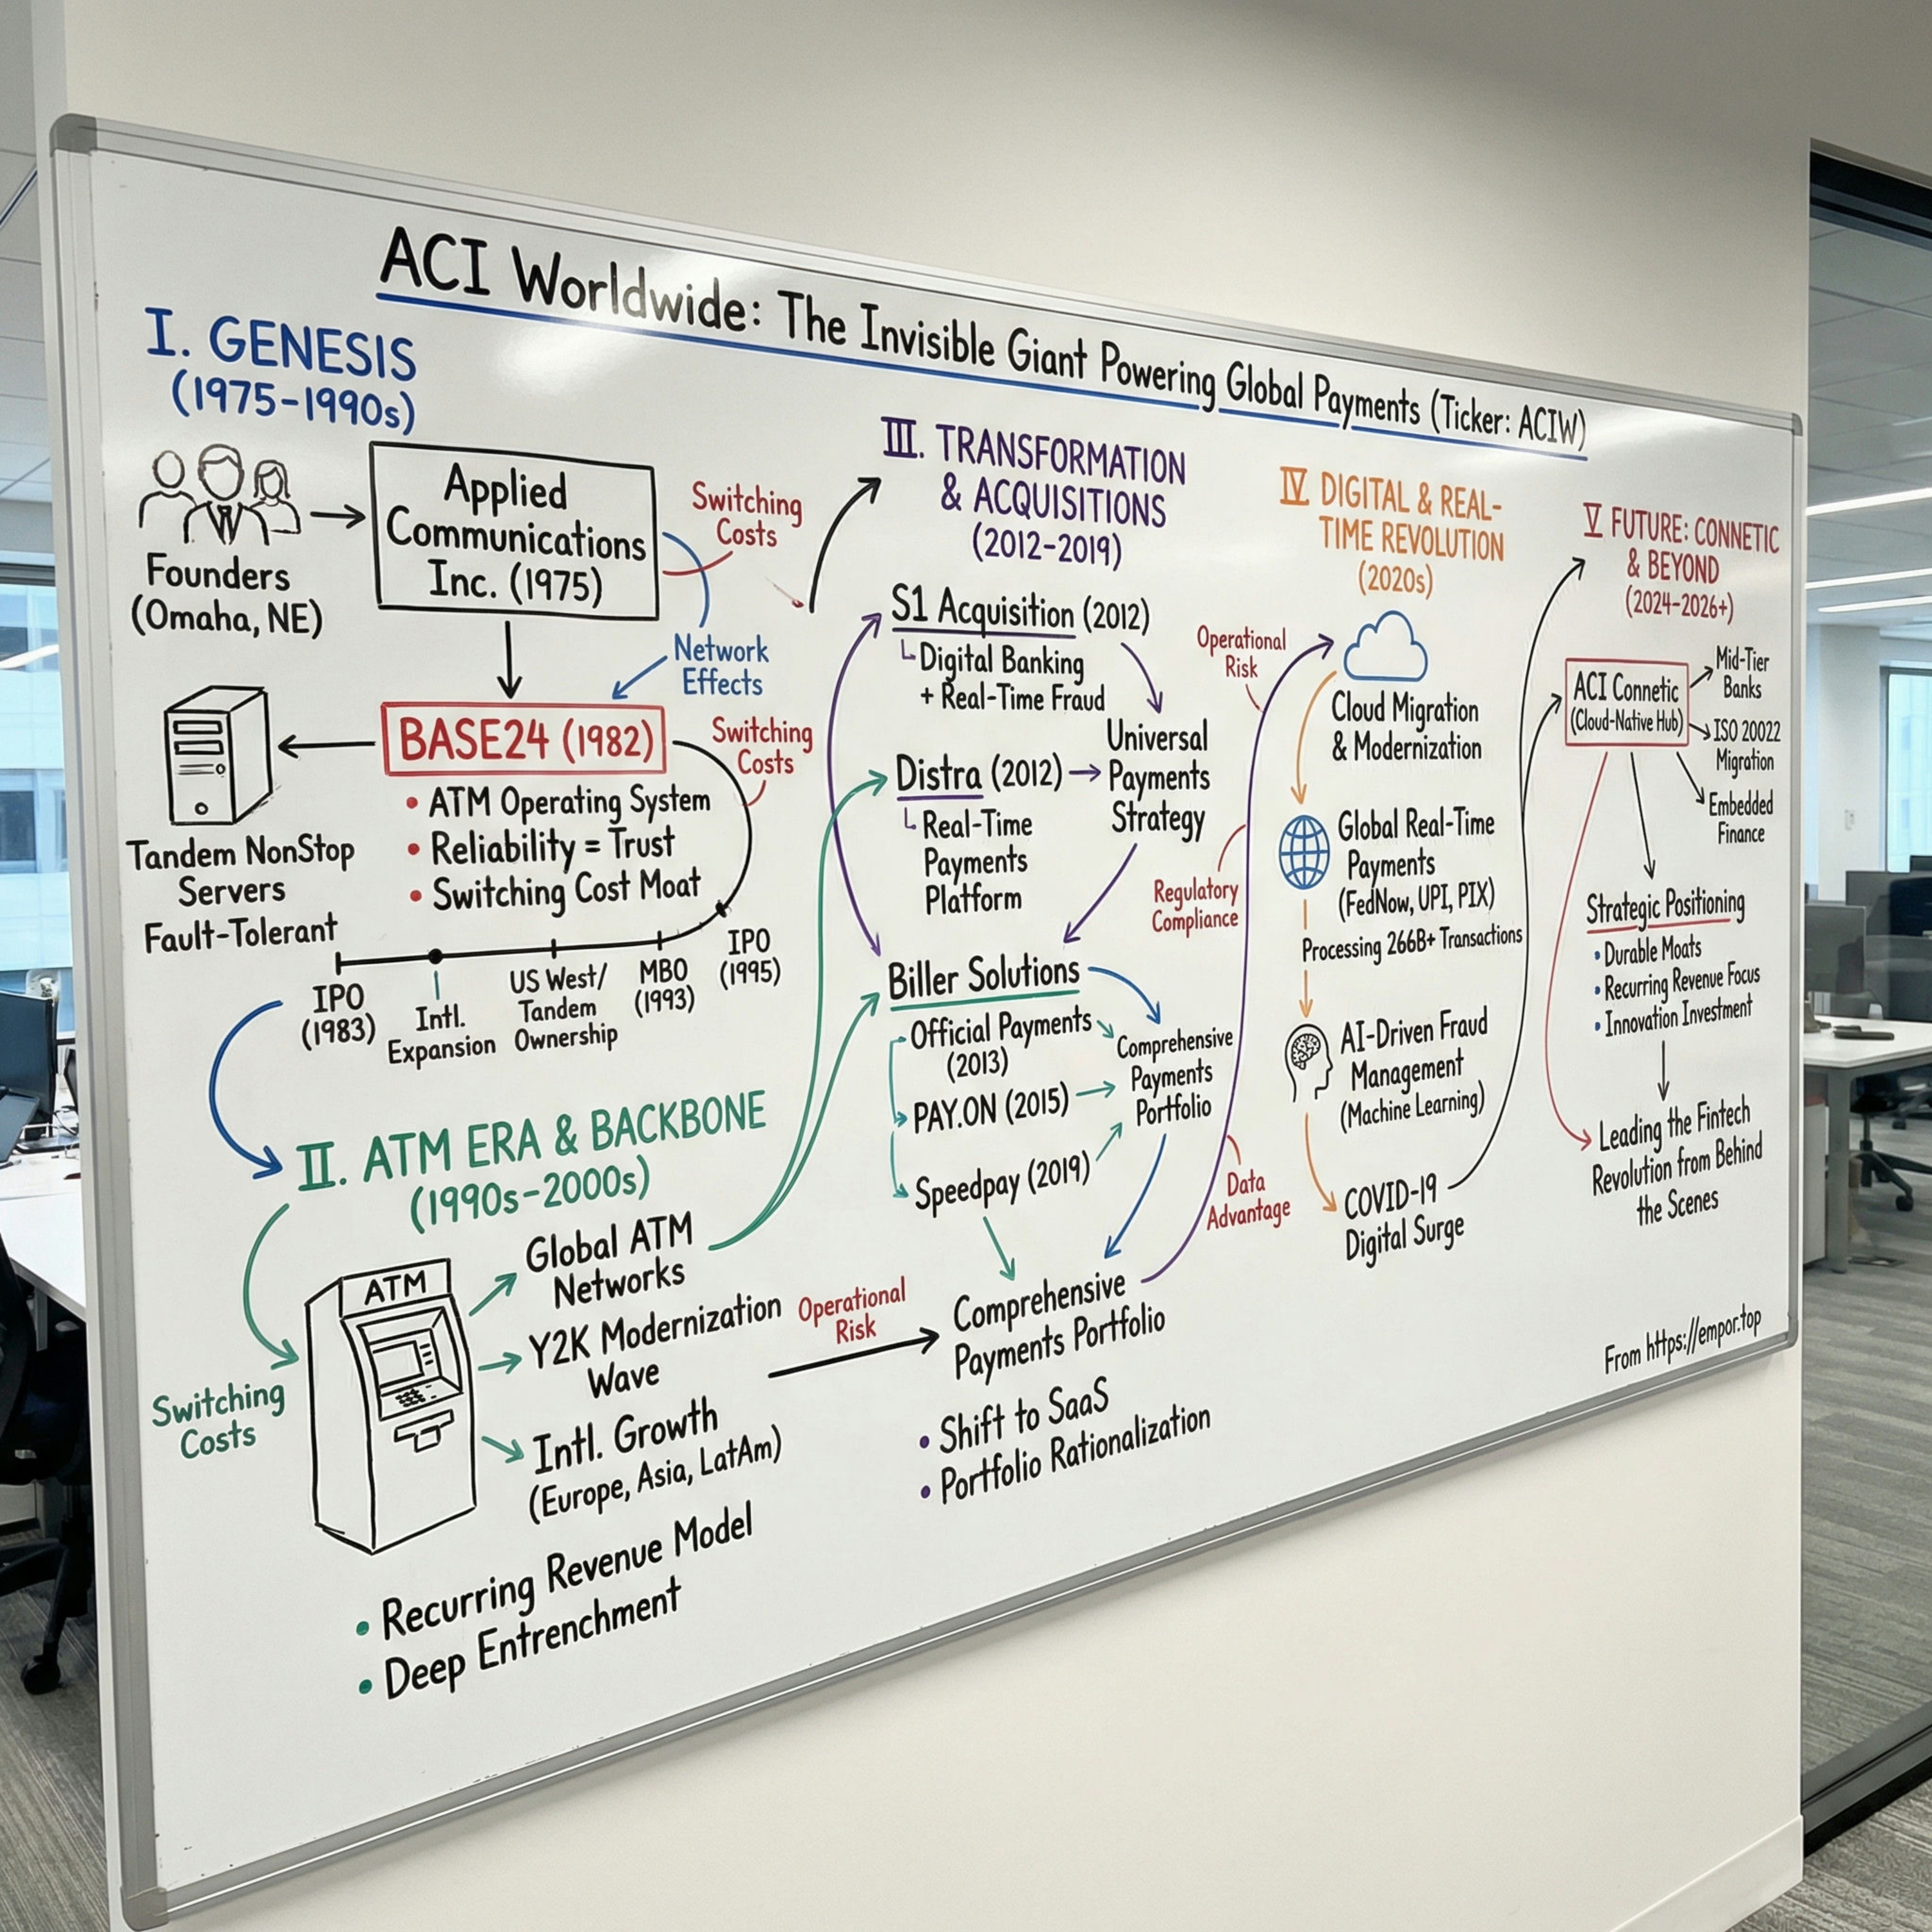 ACI Worldwide: The Invisible Giant Powering Global Payments (Ticker: ACIW)
I. GENESIS
(1975-1990s)
Founders
(Omaha, NE)
Applied
Communications
Inc. (1975)
Switching
Costs
Network
Effects
BASE24 (1982)
Switching
Costs
• ATM Operating System
• Reliability = Trust
• Switching Cost Moat
Tandem NonStop
Servers
Fault-Tolerant
IPO
(1983)
Intl.
Expansion
US West/
Tandem
Ownership
MBO
(1993)
IPO
(1995)
II. ATM ERA & BACKBONE
(1990s-2000s)
Switching
Costs
ATM
Global ATM
Networks
Y2K Modernization
Wave
Intl. Growth
(Europe, Asia, LatAm)
• Recurring Revenue Model
• Deep Entrenchment
Operational
Risk
III. TRANSFORMATION
& ACQUISITIONS
(2012-2019)
S1 Acquisition (2012)
Digital Banking
+ Real-Time Fraud
Distra (2012)
Real-Time
Payments
Platform
Universal
Payments
Strategy
Biller Solutions
Official Payments
(2013)
PAY.ON (2015)
Speedpay (2019)
Comprehensive
Payments
Portfolio
Comprehensive
Payments Portfolio
• Shift to SaaS
• Portfolio Rationalization
Operational
Risk
Regulatory
Compliance
Data
Advantage
IV DIGITAL & REAL-
TIME REVOLUTION
(2020s)
Cloud Migration
& Modernization
Global Real-Time
Payments
(FedNow, UPI, PIX)
Processing 266B+ Transactions
AI-Driven Fraud
Management
(Machine Learning)
COVID-19
Digital Surge
V FUTURE: CONNETIC
& BEYOND
(2024-2026+)
ACI Connetic
(Cloud-Native Hub)
Mid-Tier
Banks
ISO 20022
Migration
Embedded
Finance
Strategic Positioning
• Durable Moats
• Recurring Revenue Focus
• Innovation Investment
Leading the Fintech
Revolution from Behind
the Scenes
From https://empor.top